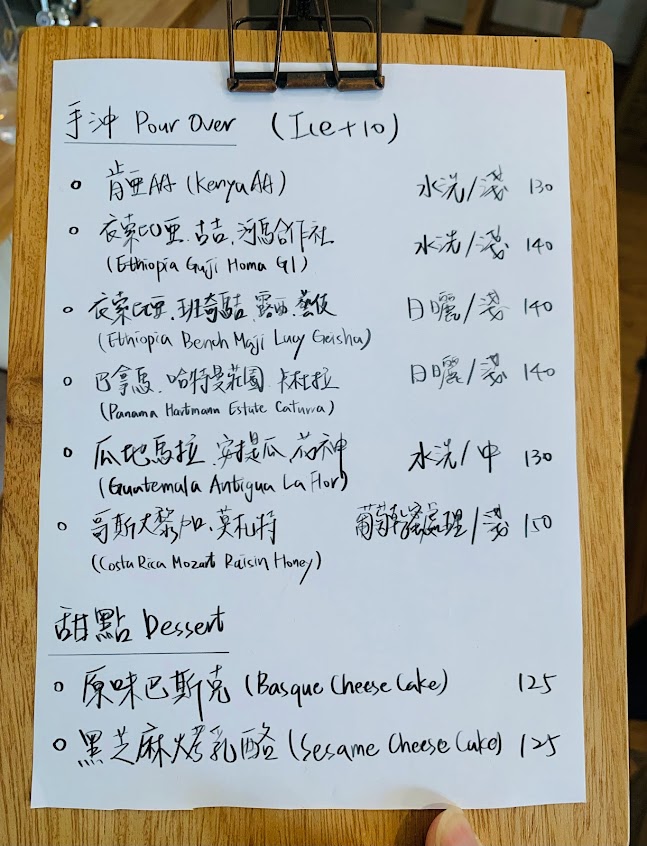 手沖 Pour Over (Ice+10)
肯亞AA (Kenya AA) 水洗/淺 130
衣索比亞.古吉.河馬合作社 水洗/淺 140
(Ethiopia Guji Homa G1)
衣索比亞.班奇馬吉.露西.藝伎 日曬/淺 140
(Ethiopia Bench Maji Lucy Geisha)
巴拿馬.哈特曼莊園.卡杜拉 日曬/淺 140
(Panama Hartmann Estate Caturra)
瓜地馬拉.安提瓜.花神 水洗/中 130
(Guatemala Antigua La Flor)
哥斯大黎加.莫札特 葡萄乾蜜處理/淺 150
(Costa Rica Mozart Raisin Honey)
甜點 Dessert
原味巴斯克 (Basque Cheese Cake) 125
黑芝麻烤乳酪 (Sesame Cheese Cake) 125